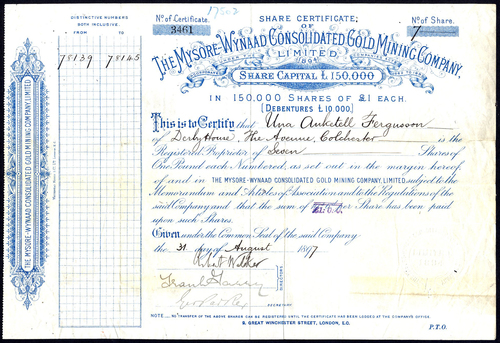 DISTINCTIVE NUMBERS
BOTH INCLUSIVE.
FROM TO
78139 78145
THE MYSORE-WYNAAD CONSOLIDATED GOLD MINING COMPANY, LIMITED
No. of Certificate.
3461
17502
SHARE CERTIFICATE,
OF
No. of Share.
7
THE MYSORE-WYNAAD CONSOLIDATED GOLD MINING COMPANY,
LIMITED
1894
SHARE CAPITAL £150,000
IN 150,000 SHARES OF £1 EACH.
(DEBENTURES £10,000)
This is to Certify that Una Anketell Fergusson
of Derby House, The Avenue, Colchester is the
Registered Proprietor of Seven Shares of
One Pound each Numbered, as set out in the margin hereof
of and in THE MYSORE-WYNAAD CONSOLIDATED GOLD MINING COMPANY, LIMITED, subject to the
Memorandum and Articles of Association and to the Regulations of the
said Company and that the sum of per Share has been paid
upon such Shares.
Given under the Common Seal of the said Company
the 31 day of August 1897
Robert Walker
DIRECTORS
SECRETARY
NOTE. NO TRANSFER OF THE ABOVE SHARES CAN BE REGISTERED UNTIL THE CERTIFICATE HAS BEEN LODGED AT THE COMPANY'S OFFICE
9, GREAT WINCHESTER STREET, LONDON, E.C.
P.T.O.